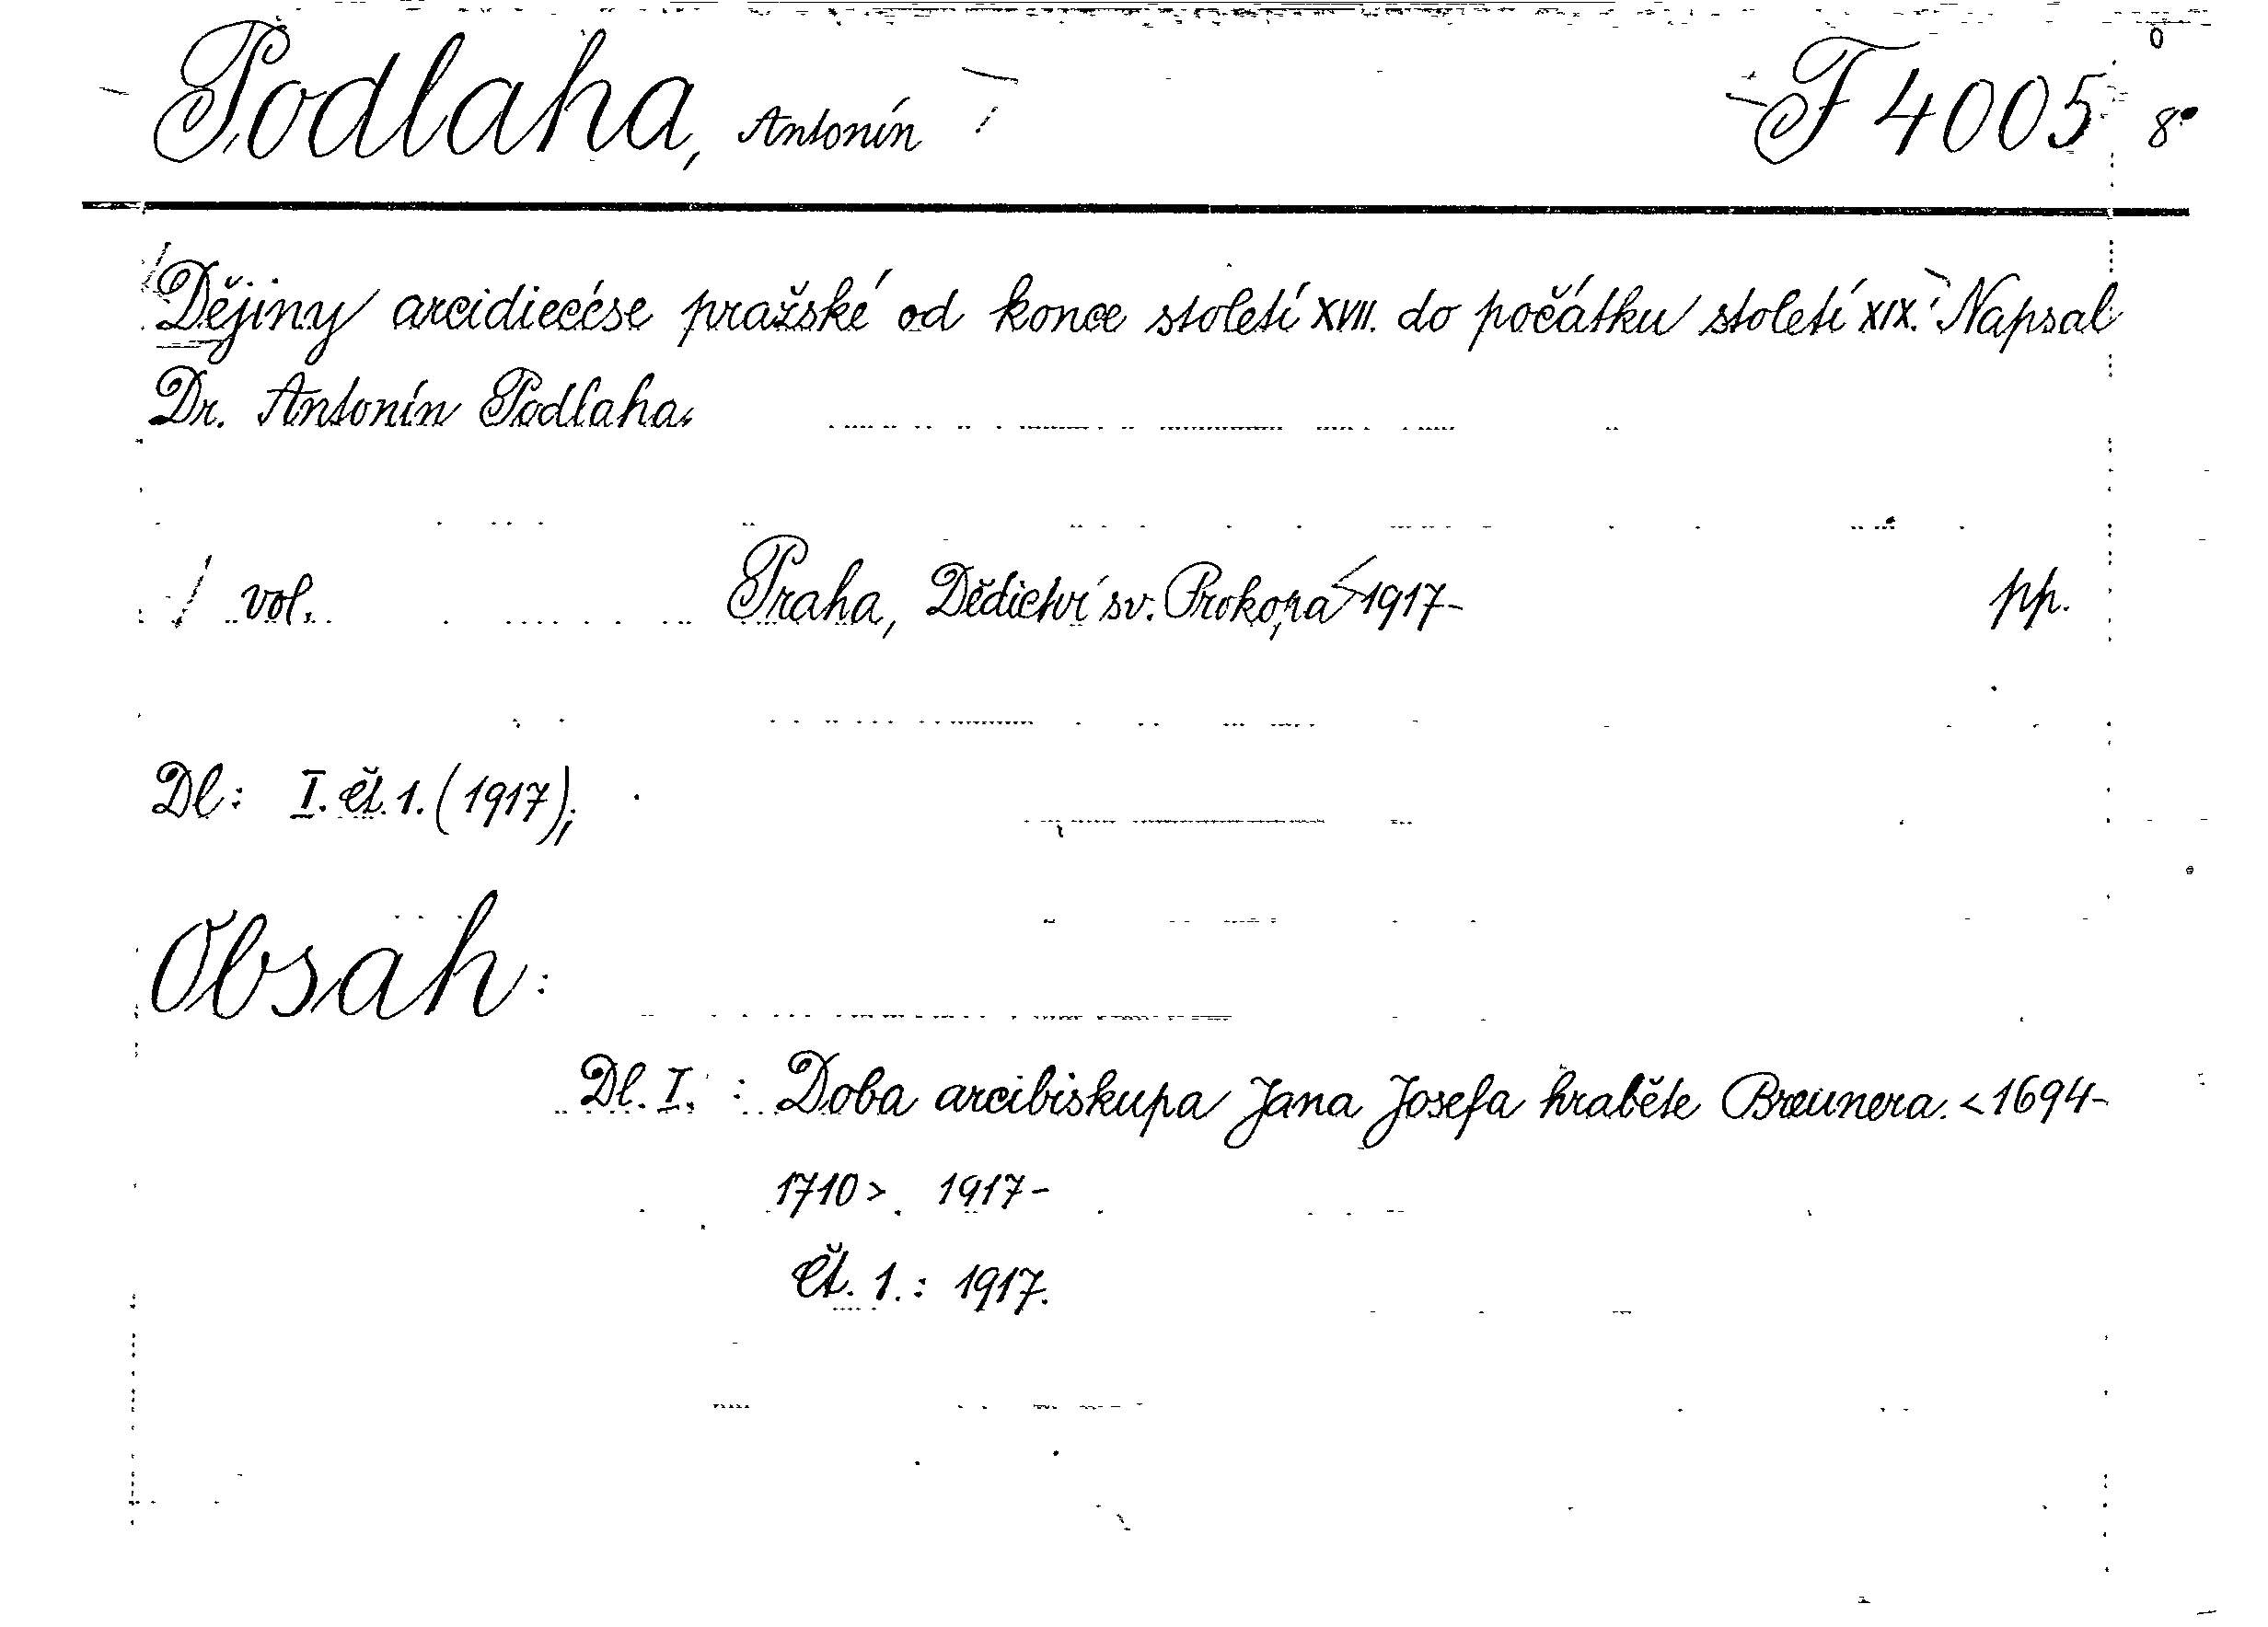 Podlaha, Antonín F 4005 8°
Dějiny arcidiecése pražské od konce století XVII. do počátku století XIX. Napsal
Dr. Antonín Podlaha.
vol. Praha, Dědictví sv. Prokopa <1917- pp.
Dl: I. čt. 1. (1917);
Obsah:
Dl. I. : Doba arcibiskupa Jana Josefa hraběte Breunera. <1694-
1710>. 1917-
Čt. 1.: 1917.